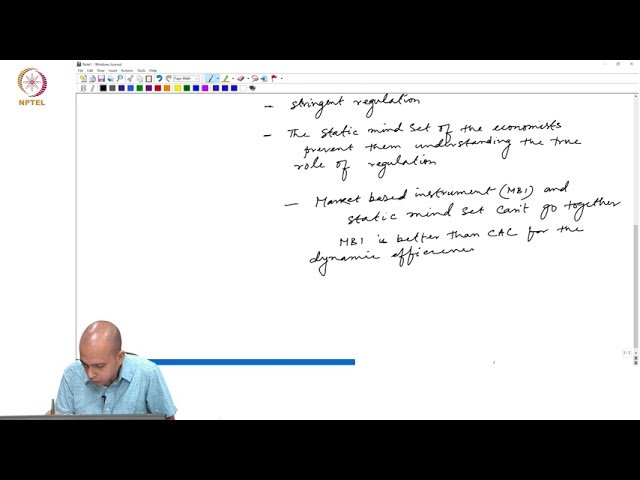 Note1 - Windows Journal
File Edit View Insert Actions Tools Help
NPTEL
- stringent regulation
- The static mind set of the economists
prevent them understanding the true
role of regulation
- Market based instrument (MBI) and
static mind set can't go together
MBI is better than CAC for the
dynamic efficiency
2 / 2
2